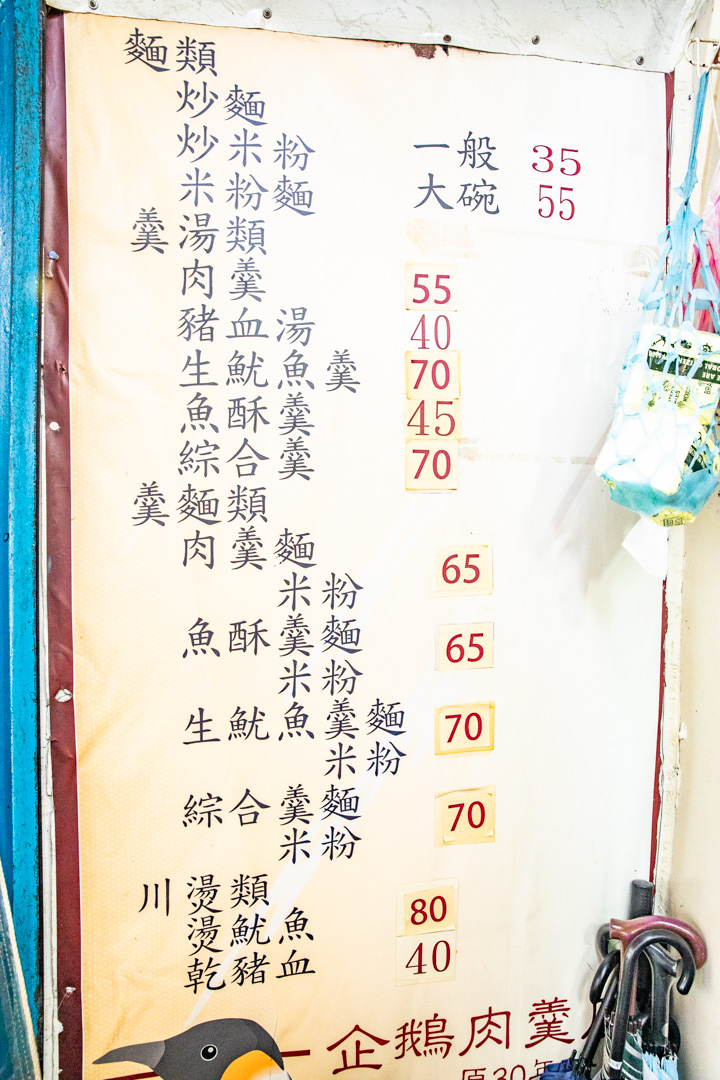 麵類
炒麵
炒米粉 一般 35
米粉麵 大碗 55
羹湯類
肉羹 55
豬血湯 40
生魷魚羹 70
魚酥羹 45
綜合羹 70
羹麵類
肉羹麵 65
米粉
魚酥羹麵 65
米粉
生魷魚羹麵 70
米粉
綜合羹麵 70
米粉
川燙類
燙魷魚 80
乾豬血 40
企鵝肉羹
原30年